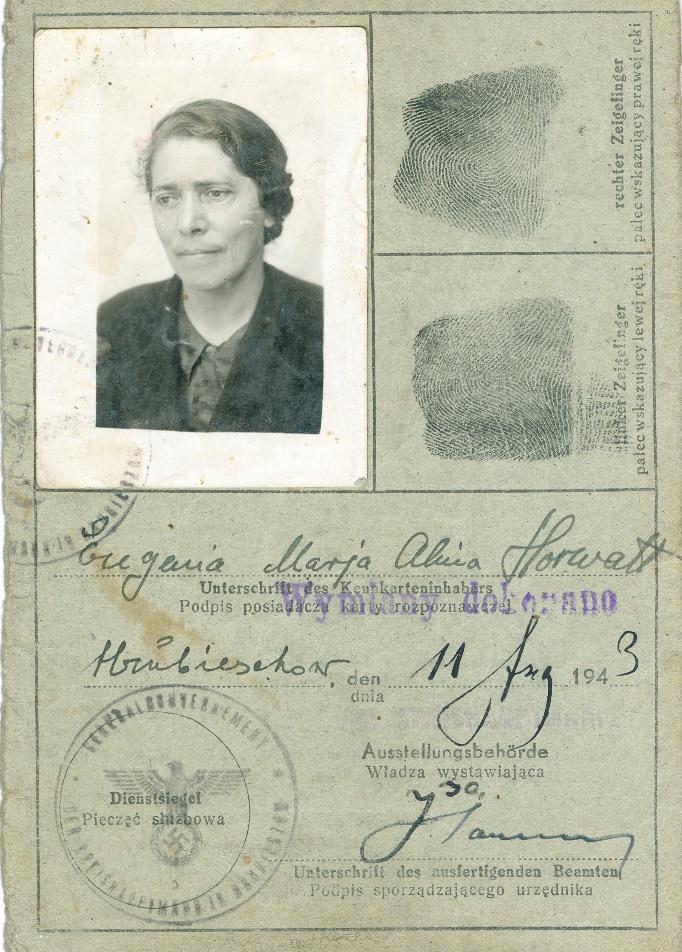 rechter Zeigefinger
palec wskazujący prawej ręki
linker Zeigefinger
palec wskazujący lewej ręki
Eugenia Marja Alina Horwatt
Unterschrift des Kennkarteninhabers
Podpis posiadacza karty rozpoznawczej
Wymiany dokonano
Hrubieschow, den 11 Aug 1943
dnia
Ausstellungsbehörde
Władza wystawiająca
GENERALGOUVERNEMENT
DER KREISHAUPTMANN IN HRUBIESZOW
Dienstsiegel
Pieczęć służbowa
Unterschrift des ausfertigenden Beamten
Podpis sporządzającego urzędnika